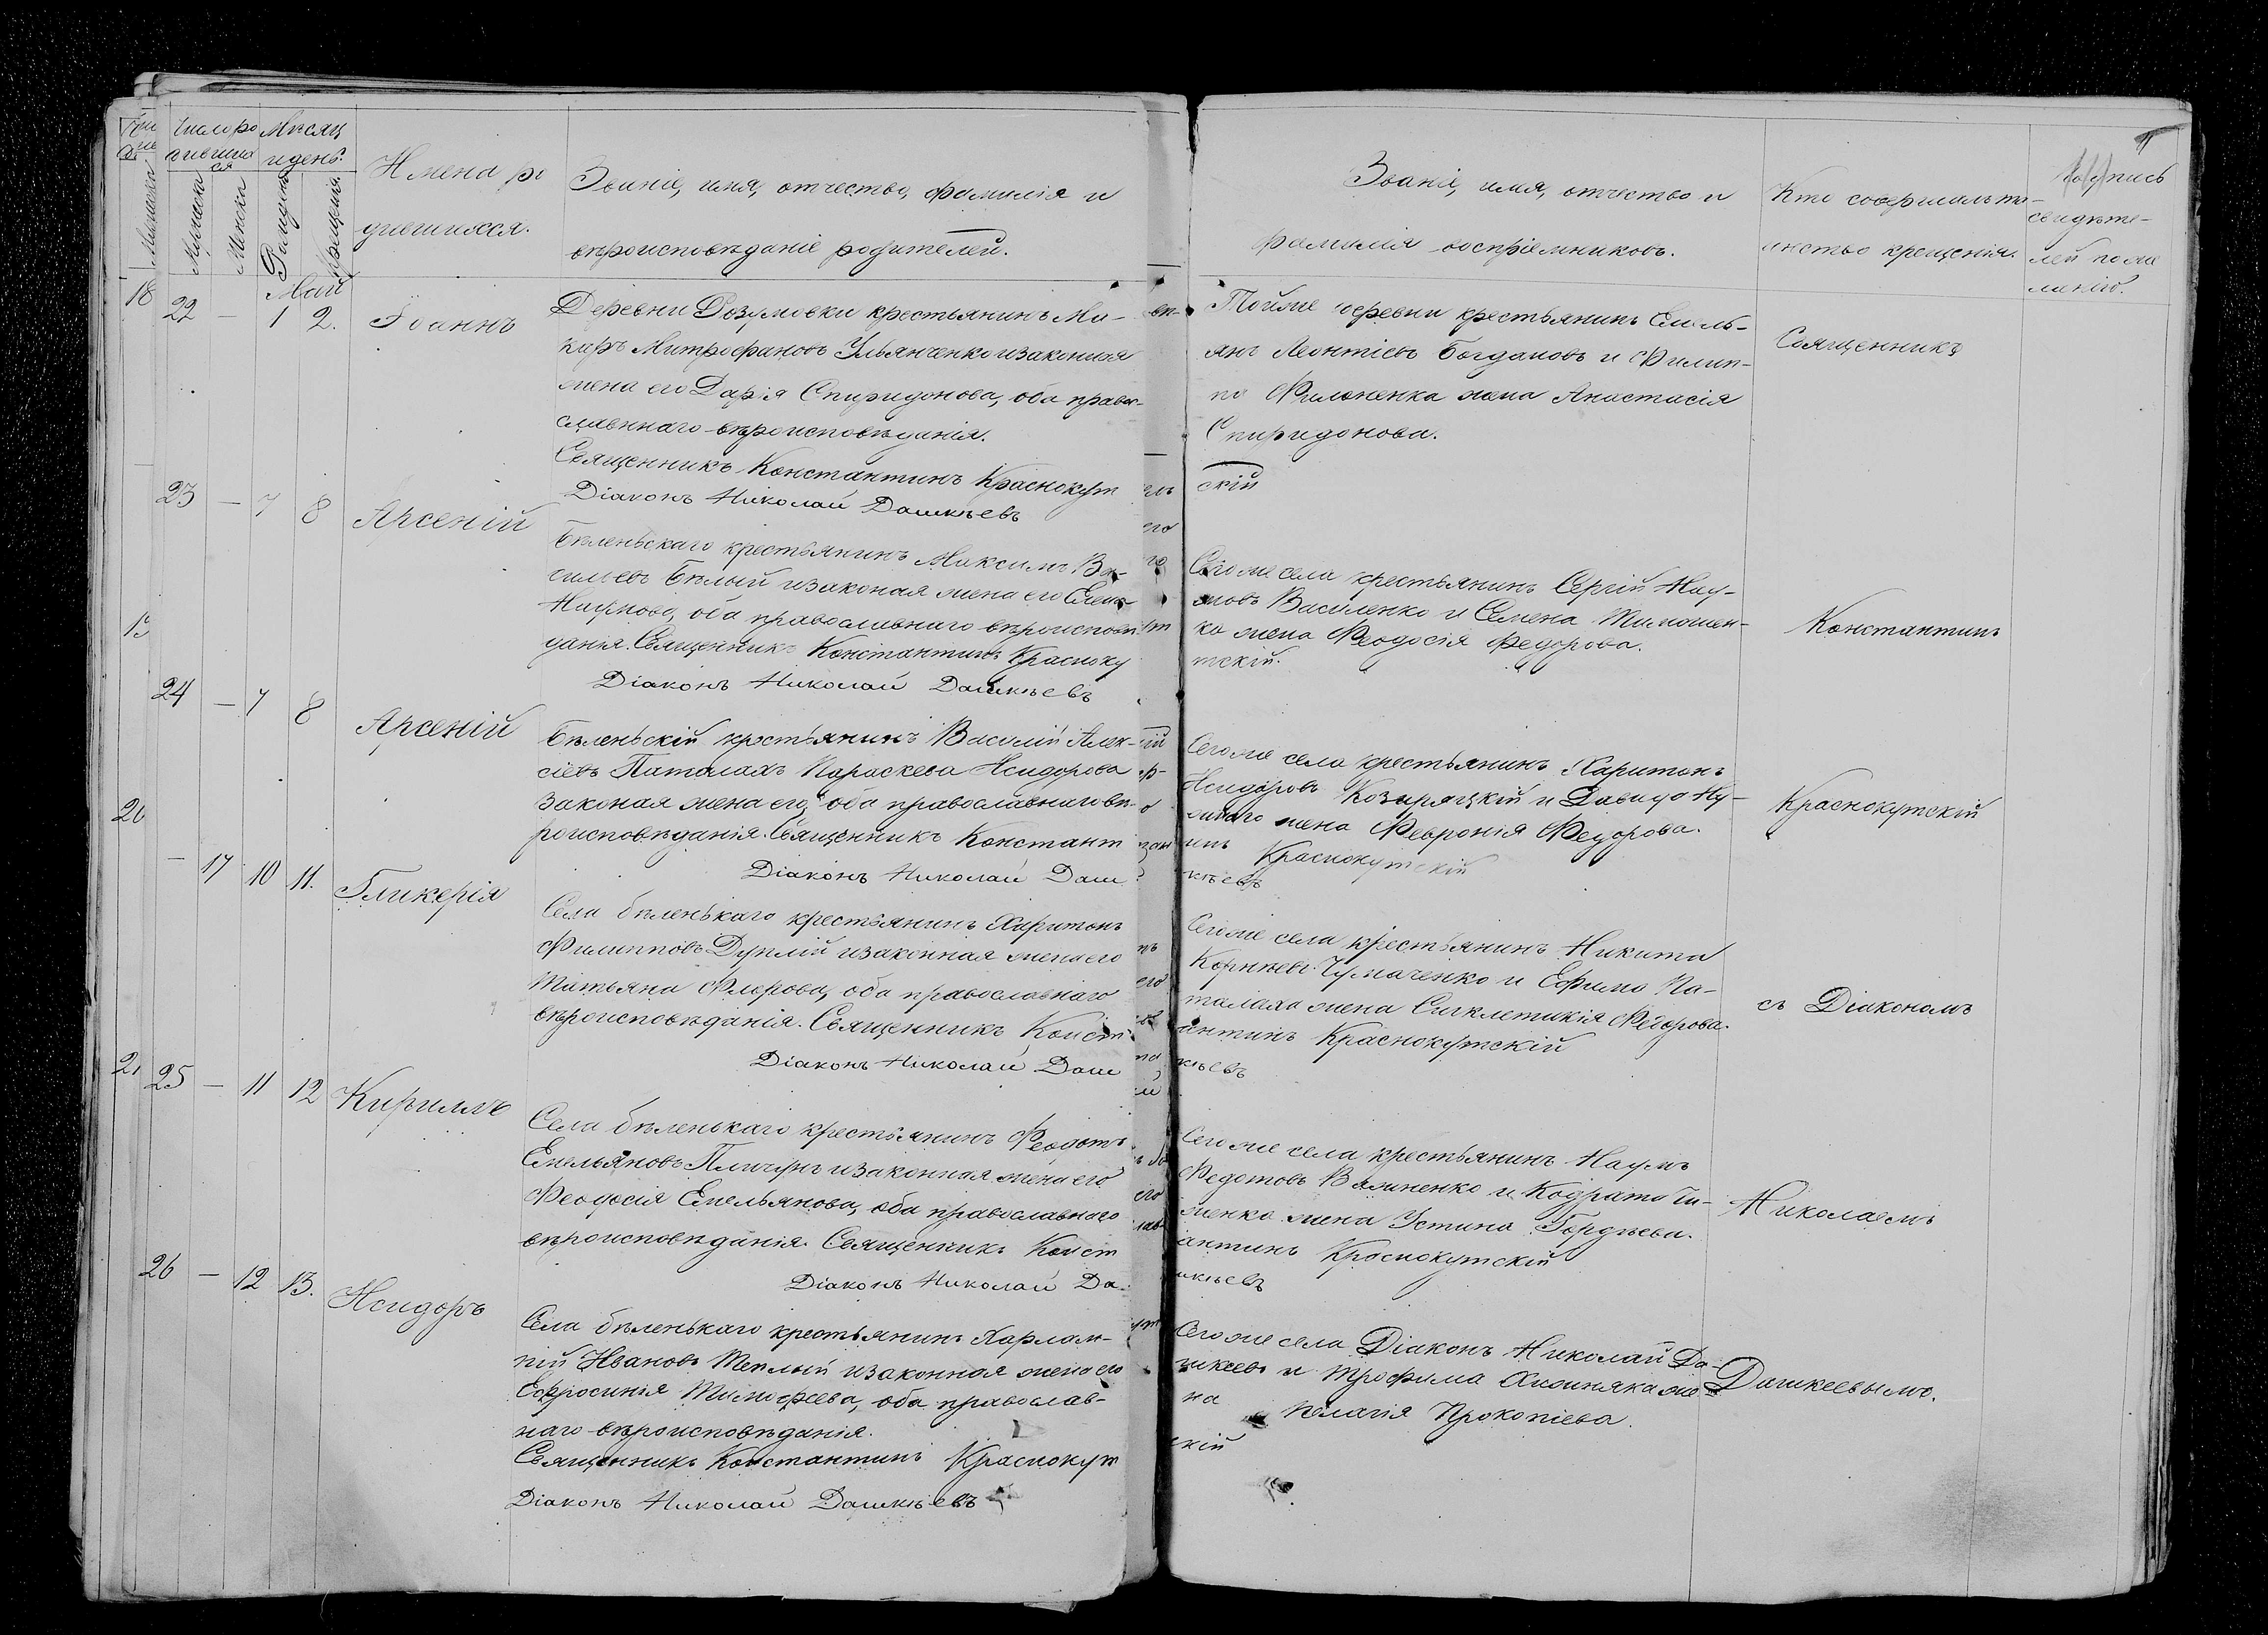 Число ро
дивших
ся
Мѣсяц
и день.
Мужска
Женска
Рожденія
Крещенія.
Имена ро
дившихся.
Званіе, имя, отчество, фамилія и
вѣроисповѣданіе родителей.
Званіе, имя, отчество и
фамилія воспріемниковъ.
Кто совершалъ та-
инство крещенія.
подпись
свидѣте-
лей по же
ланію.
Май
18
22 — 1 2.
Іоаннъ
Деревни Розумовки крестьянинъ Ма-
каръ Митрофановъ Ульянченко и законная
жена его Дарія Спиридонова, оба право-
славнаго вѣроисповѣданія.
Священникъ Константинъ Краснокут
Діаконъ Николай Дашкѣевъ
Тойже деревни крестьянинъ Емель-
янъ Леонтіевъ Богдановъ и Филип-
па Филоненка жена Анастасія
Спиридонова.
скій
Священникъ
23 — 7 8
Арсеній
Бѣленьскаго крестьянинъ Максимъ Ва-
сильевъ Бѣлый и законая жена его Елена
Наумова, оба православнаго вѣроисповѣ
данія. Священникъ Константинъ Красноку
Діаконъ Николай Дашкѣевъ
Сегоже села крестьянинъ Сергій Нау-
мовъ Василенко и Семена Тимошен-
ка жена Феодосія Федорова.
тскій.
Константинъ
24 — 7 8
Арсеній
Бѣленьскій крестьянинъ Василій Алек-
сіевъ Паталахъ Параскева Исидорова
законая жена его, оба православнаго вѣ-
роисповѣданія. Священникъ Констант
Діаконъ Николай Даш
Сегоже села крестьянинъ Харитонъ
Исидоровъ Козыряцкій и Давида
жена Февронія Федорова.
инъ Краснокутскій
кѣевъ
Краснокутскій
20
— 17 10 11.
Гликерія
Села бѣленькаго крестьянинъ Харитонъ
Филипповъ Дуплій и законная жена его
Татьяна Флорова, оба православнаго
вѣроисповѣданія. Священникъ Конст
Діаконъ Николай Даш
Сегоже села крестьянинъ Никита
Корнѣевъ Чумаченко и Ефима Па-
талаха жена Сигклетикія Федорова.
антинъ Краснокутскій
кѣевъ
съ Діакономъ
25 — 11 12
Кириллъ
Села бѣленькаго крестьянинъ Феодотъ
Емельяновъ Пличунъ и законная жена его
Феодосія Емельянова, оба православнаго
вѣроисповѣданія. Священникъ Конст
Діаконъ Николай Да
Сегоже села крестьянинъ Наумъ
Федотовъ и Кодрата
жена Устина Гордѣева.
антинъ Краснокутскій
шкѣевъ
Николаемъ
26 — 12 13.
Исидоръ
Села бѣленькаго крестьянинъ Харлам-
пій Ивановъ Теплый и законная жена его
Ефросинія Тимофеева, оба православ-
наго вѣроисповѣданія.
Священникъ Константинъ Краснокут
Діаконъ Николай Дашкѣевъ
Сегоже села Діаконъ Николай Да-
шкеевъ и Трофима же-
на Пелагія Прокопіева.
скій
Дашкеевымъ.